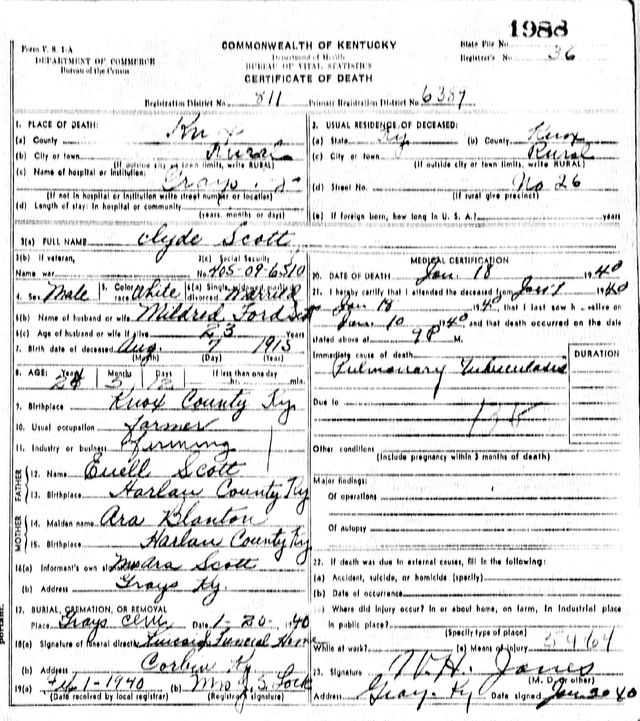 1988
Form V. S. 1-A
DEPARTMENT OF COMMERCE
Bureau of the Census
COMMONWEALTH OF KENTUCKY
Department of Health
BUREAU OF VITAL STATISTICS
CERTIFICATE OF DEATH
State File No.
Registrar's No. 36
Registration District No. 811 Primary Registration District No. 6387
1. PLACE OF DEATH:
(a) County Knox
(b) City or town Rural
(If outside city or town limits, write RURAL)
(c) Name of hospital or institution: Grays
(If not in hospital or institution write street number or location)
(d) Length of stay: In hospital or community
(years, months or days)
2. USUAL RESIDENCE OF DECEASED:
(a) State Ky (b) County Knox
(c) City or town Rural
(If outside city or town limits, write RURAL)
(d) Street No. No 26
(If rural give precinct)
(e) If foreign born, how long in U. S. A.? years
3(a) FULL NAME Clyde Scott
3(b) If veteran, Name war
3(c) Social Security No. 405-09-6510
4. Sex Male 5. Color race White 6(a) Single, widowed, married, divorced Married
6(b) Name of husband or wife Mildred Ford Scott
6(c) Age of husband or wife if alive 23 Years
7. Birth date of deceased Aug. 7 1915
(Month) (Day) (Year)
8. AGE: Years Months Days If less than one day
24 5 hr. min.
9. Birthplace Knox County Ky
10. Usual occupation farmer
11. Industry or business farming
FATHER
12. Name Euell Scott
13. Birthplace Harlan County Ky
MOTHER
14. Maiden name Ara Blanton
15. Birthplace Harlan County Ky
16(a) Informant's own signature Scott
(b) Address Grays Ky.
17. BURIAL, CREMATION, OR REMOVAL
Place Grays Cem Date 1-20-40
18(a) Signature of funeral director Funeral Home
(b) Address Corbin Ky.
19(a) Feb 1-1940 (b) Mrs J. S. Lock
(Date received by local registrar) (Registrar's signature)
MEDICAL CERTIFICATION
20. DATE OF DEATH Jan 18 1940
21. I hereby certify that I attended the deceased from Jan 1 1940
Jan 18 1940, that I last saw h alive on
Jan. 10 1940, and that death occurred on the date
stated above at 9P M.
Immediate cause of death
Pulmonary Tuberculosis
DURATION
Due to
Other conditions
(Include pregnancy within 3 months of death)
Major findings:
Of operations
Of autopsy
22. If death was due to external causes, fill in the following:
(a) Accident, suicide, or homicide (specify)
(b) Date of occurrence
(c) Where did injury occur? In or about home, on farm, in industrial place
in public place?
(Specify type of place)
While at work? (e) Means of injury 5464
23. Signature W. H. Jones
(M. D. or other)
Address Gray, Ky Date signed Jan. 20 40